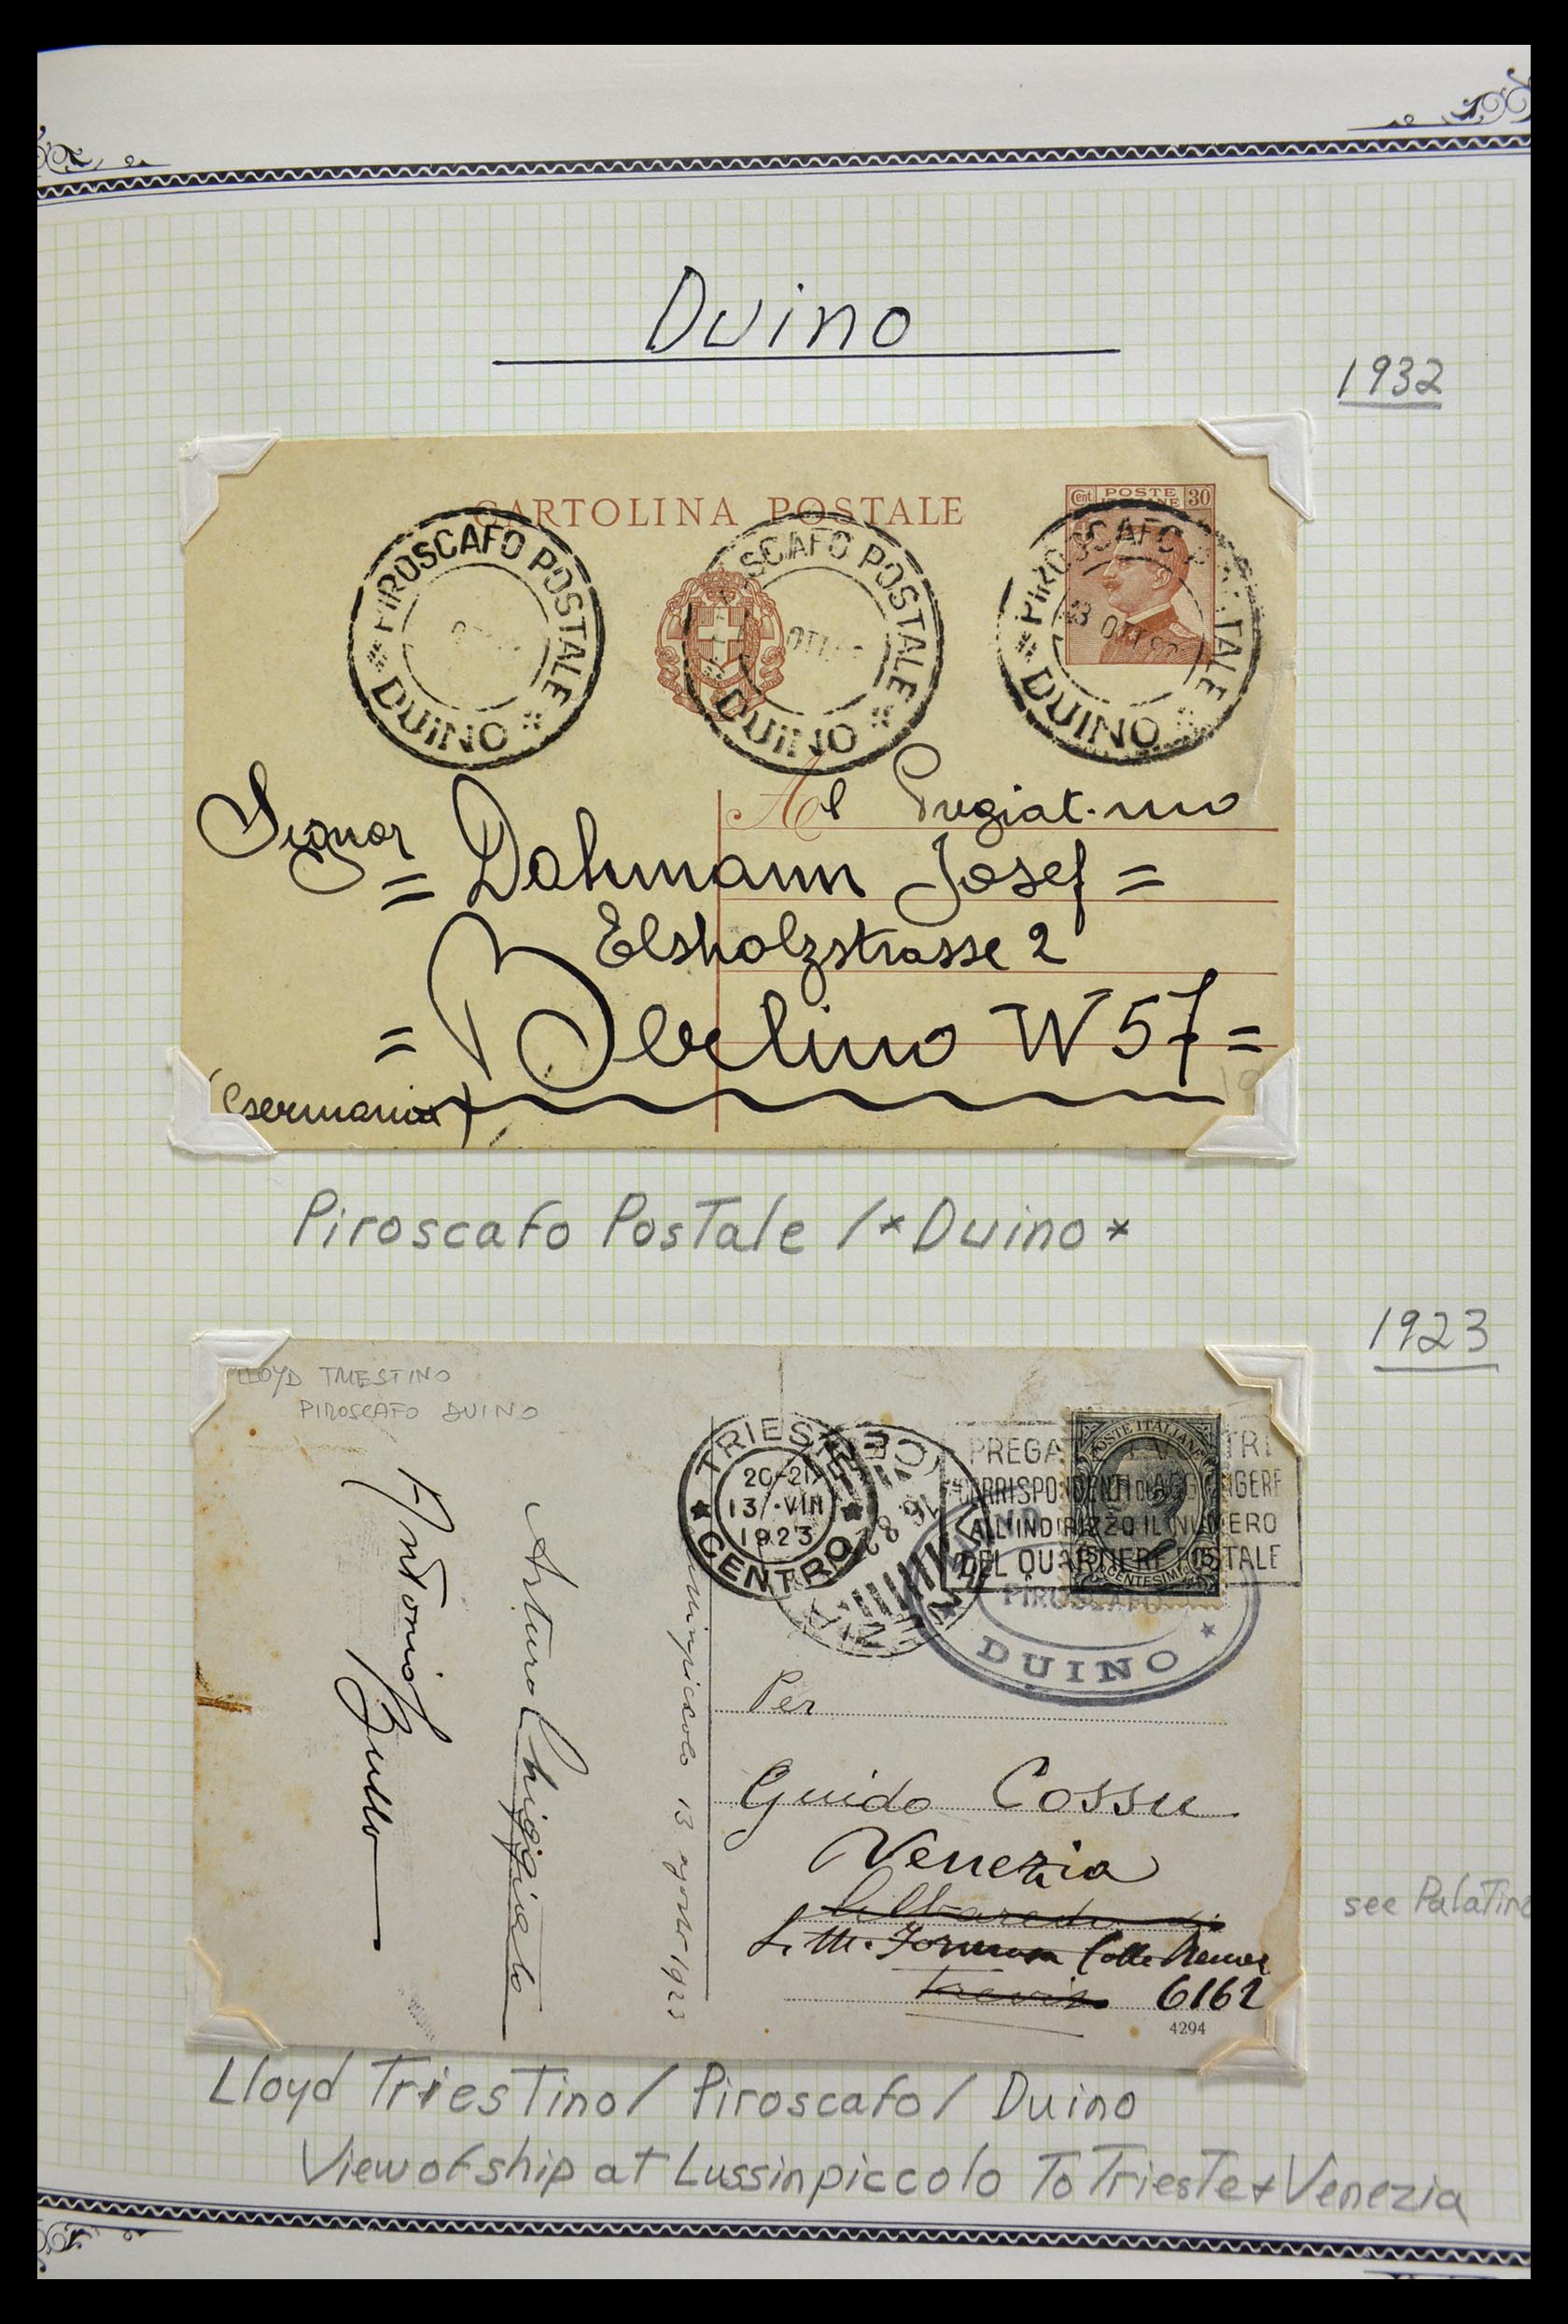 Duino
1932
CARTOLINA POSTALE
Cent POSTE 30
PIROSCAFO POSTALE
DUINO
SCAFO POSTALE
OTT
DUINO
PIROSCAFO TALE
OTT
DUINO
Al Pregiat.mo
Signor
= Dahmann Josef =
Elsholzstrasse 2
= Berlino W 57 =
(Germania)
Piroscafo Postale / * Duino *
1923
LLOYD TRIESTINO
PIROSCAFO DUINO
Antonio Bullo
Arturo
Lussinpiccolo 13 agosto 1923
TRIESTE
20-21
13 · VIII
1923
CENTRO
PREGA TRI
CORRISPONDENTI DI AGGIUNGERE
ALL'INDIRIZZO IL NUMERO
DEL QUARTIERE POSTALE
POSTE ITALIANE
15 CENTESIMI 15
PIROSCAFO
DUINO
Per
Guido Cossu
Venezia
6162
4294
see Palatino
Lloyd Triestino / Piroscafo / Duino
View of ship at Lussinpiccolo To Trieste + Venezia